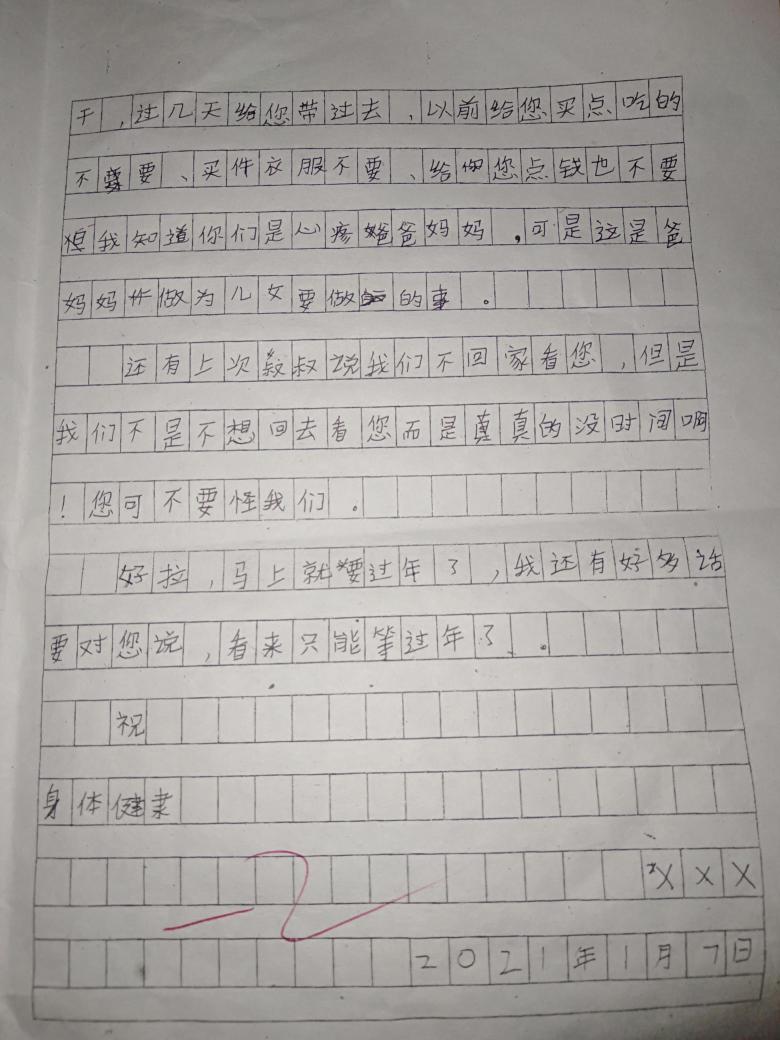 干,过几天给您带过去,以前给您买点吃的
不要、买件衣服不要、给您点钱也不要
我知道你们是心疼爸爸妈妈,可是这是爸
妈妈作做为儿女要做的事。
还有上次叔叔说我们不回家看您,但是
我们不是不想回去看您而是真真的没时间啊
!您可不要怪我们。
好拉,马上就要过年了,我还有好多话
要对您说,看来只能等过年了、。
祝
身体健
XXX
2021年1月7日